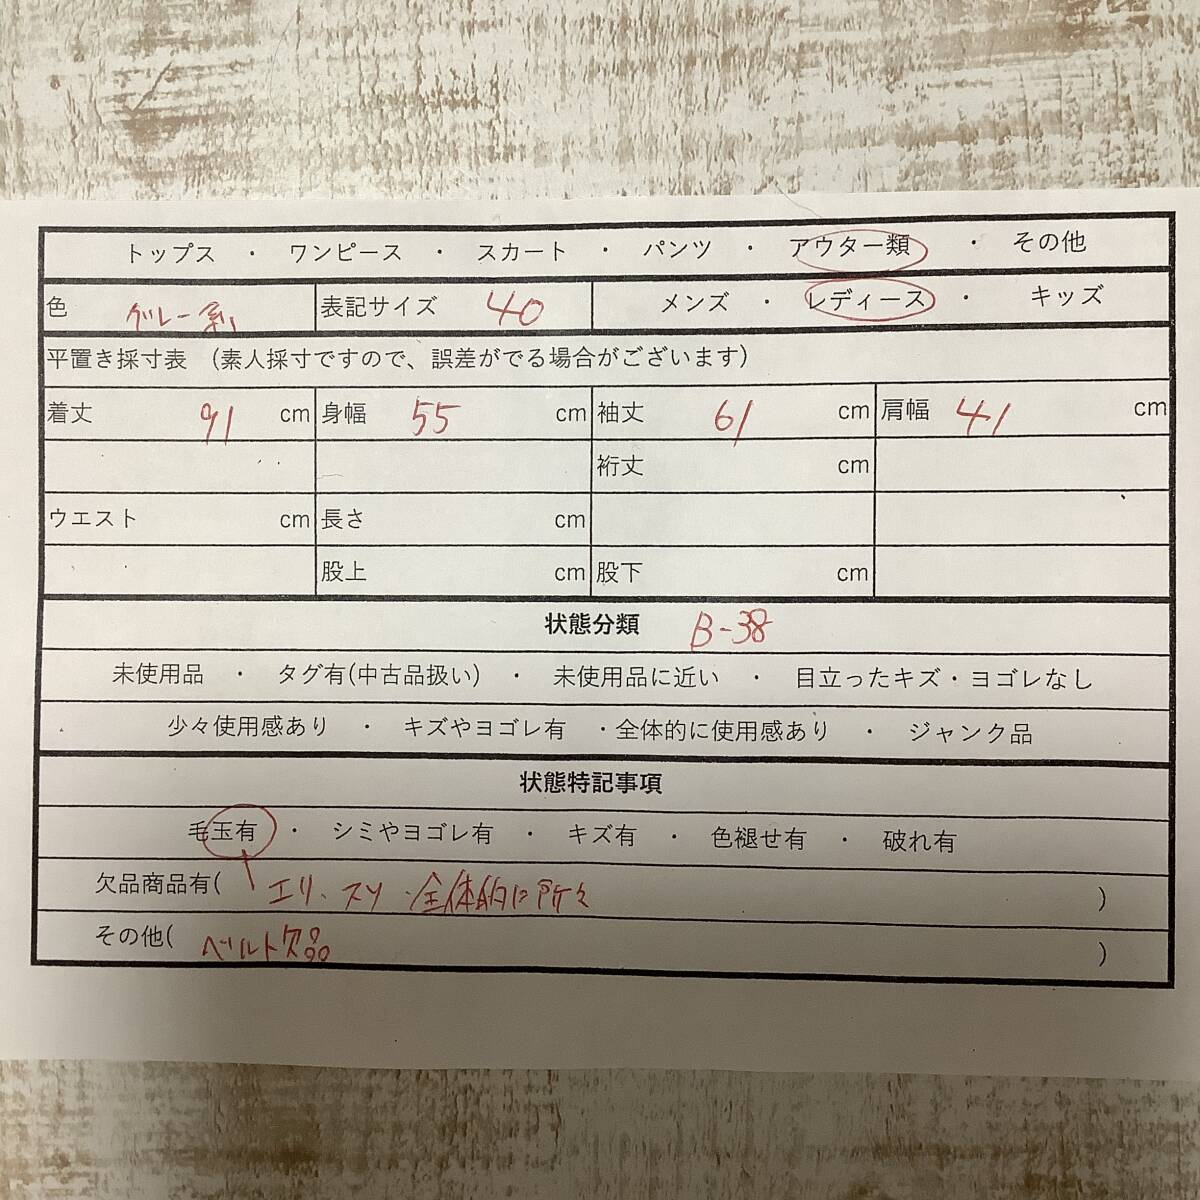 トップス ・ ワンピース ・ スカート ・ パンツ ・ アウター類 ・ その他
色 グレー系 表記サイズ 40 メンズ ・ レディース ・ キッズ
平置き採寸表 (素人採寸ですので、誤差がでる場合がございます)
着丈 91 cm 身幅 55 cm 袖丈 61 cm 肩幅 41 cm
裄丈 cm
ウエスト cm 長さ cm
股上 cm 股下 cm
状態分類 B-38
未使用品 ・ タグ有(中古品扱い) ・ 未使用品に近い ・ 目立ったキズ・ヨゴレなし
少々使用感あり ・ キズやヨゴレ有 ・全体的に使用感あり ・ ジャンク品
状態特記事項
毛玉有 ・ シミやヨゴレ有 ・ キズ有 ・ 色褪せ有 ・ 破れ有
欠品商品有( エリ、スソ・全体的に所々 )
その他( ベルト欠品 )